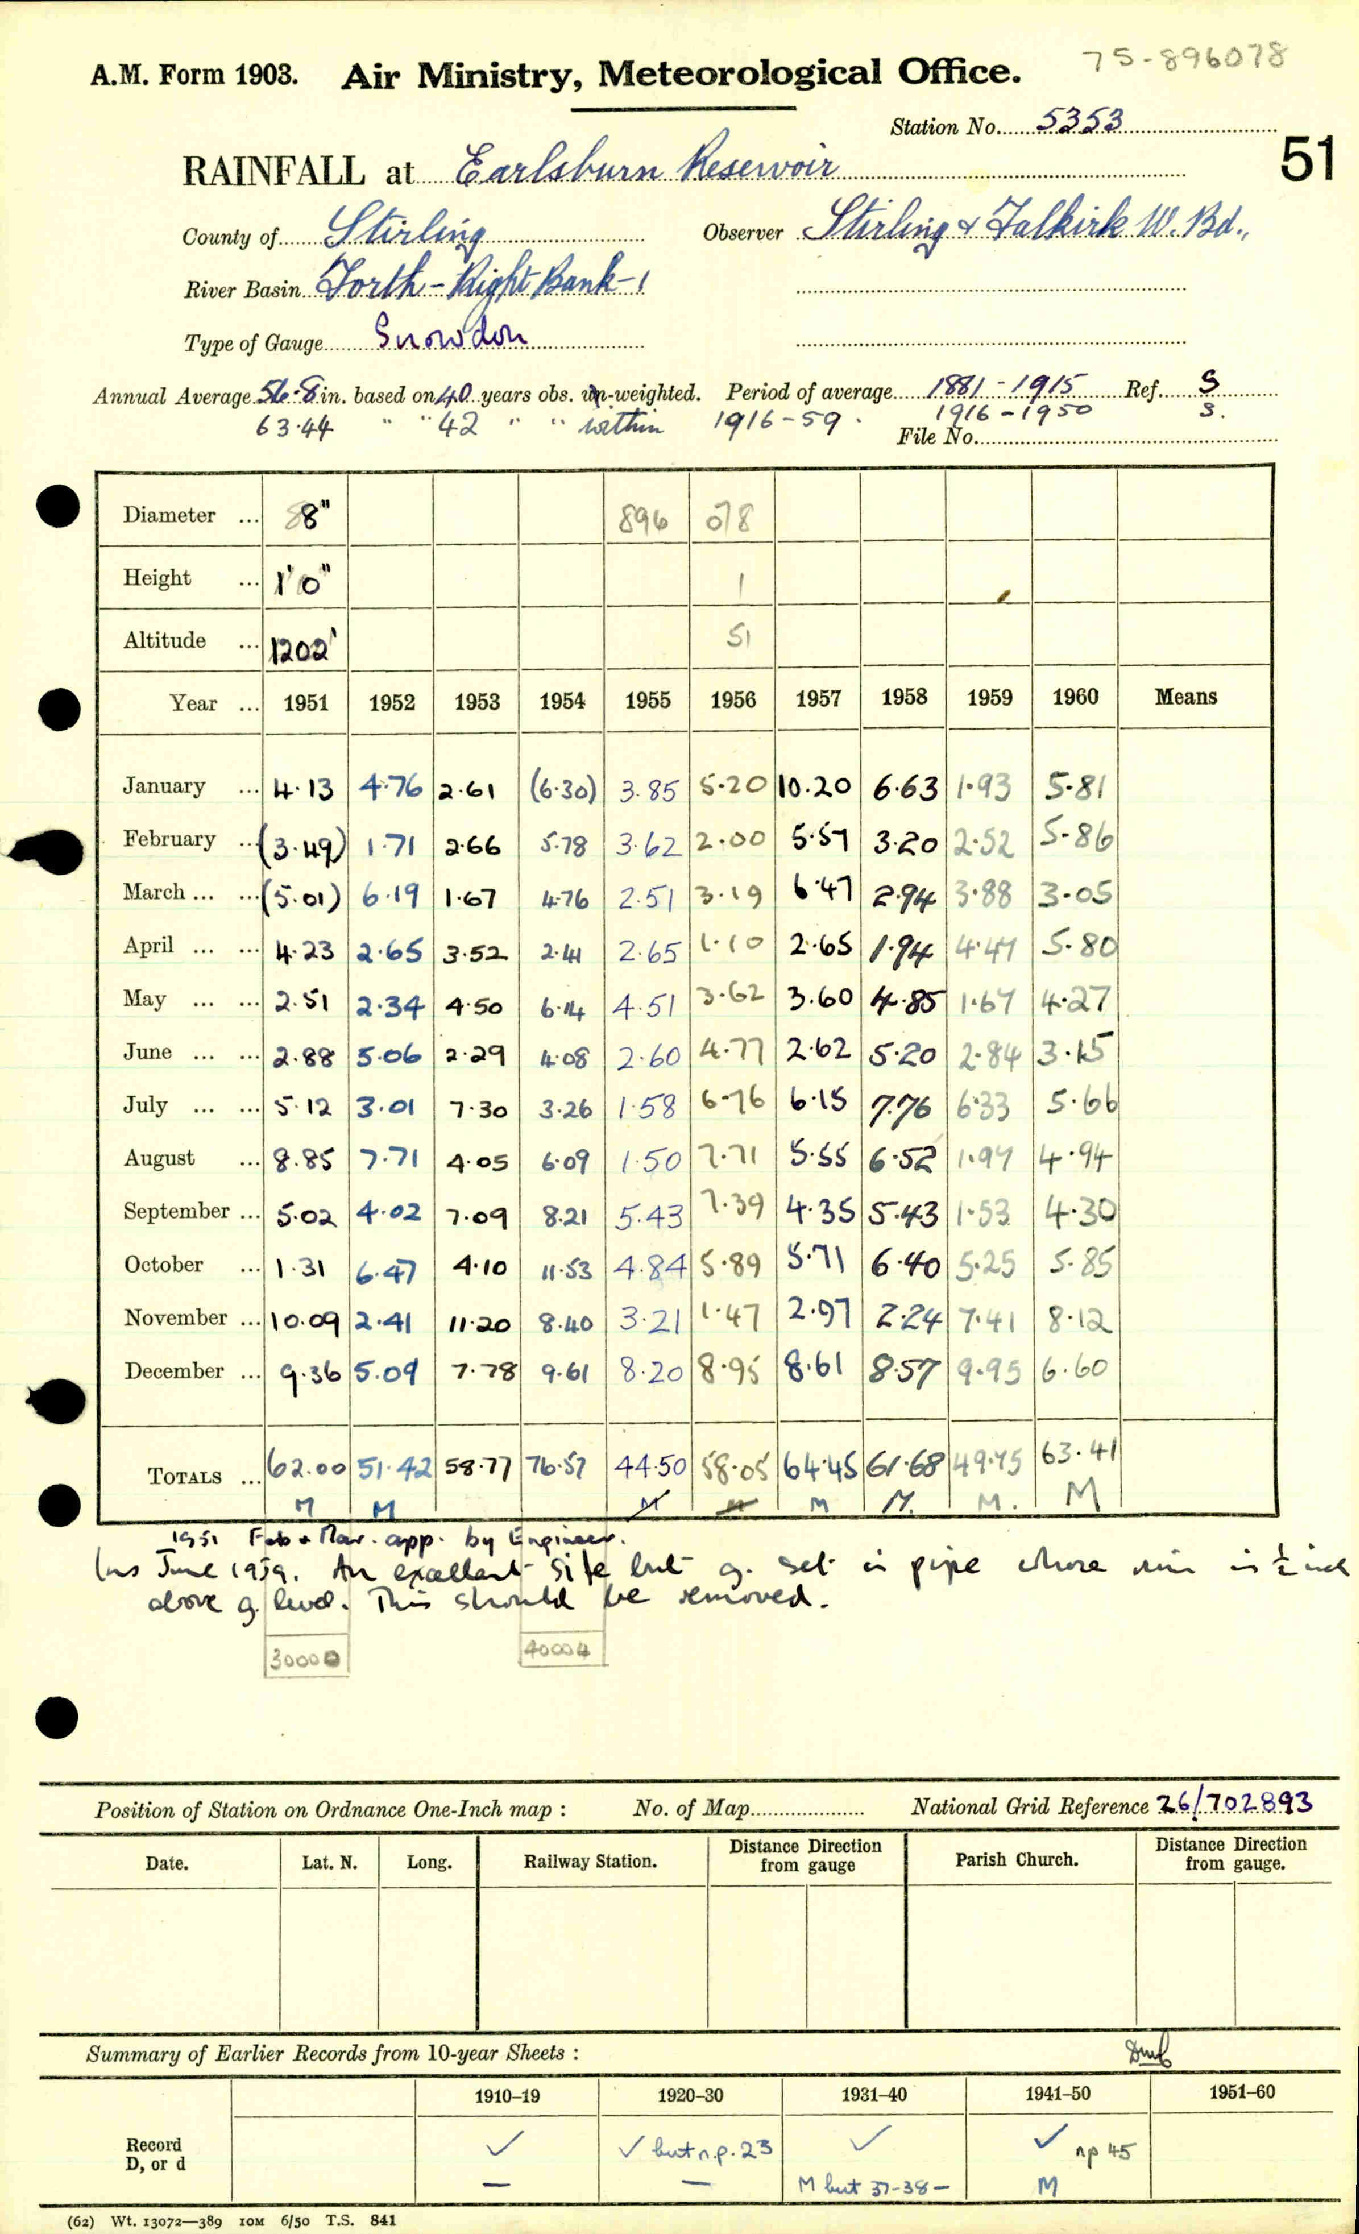 75-896078
A.M. Form 1903. Air Ministry, Meteorological Office.
Station No. 5353
51
RAINFALL at Earlsburn Reservoir
County of Stirling Observer Stirling & Falkirk W. Bd.,
River Basin Forth - Right Bank - 1
Type of Gauge Snowdon
Annual Average 56.8 in. based on 40 years obs. un-weighted. Period of average 1881-1915 Ref. S
63.44 " " 42 " " within 1916-59. 1916-1950 S.
File No.
Diameter ... 8" 896 078
Height ... 1'0" 1
Altitude ... 1202' 51
Year ... 1951 1952 1953 1954 1955 1956 1957 1958 1959 1960 Means
January ... 4.13 4.76 2.61 (6.30) 3.85 5.20 10.20 6.63 1.93 5.81
February ... (3.49) 1.71 2.66 5.78 3.62 2.00 5.57 3.20 2.52 5.86
March ... ... (5.01) 6.19 1.67 4.76 2.51 3.19 6.47 2.94 3.88 3.05
April ... ... 4.23 2.65 3.52 2.41 2.65 1.10 2.65 1.94 4.47 5.80
May ... ... 2.51 2.34 4.50 6.14 4.51 3.62 3.60 4.85 1.67 4.27
June ... ... 2.88 5.06 2.29 4.08 2.60 4.77 2.62 5.20 2.84 3.15
July ... ... 5.12 3.01 7.30 3.26 1.58 6.76 6.15 7.76 6.33 5.66
August ... 8.85 7.71 4.05 6.09 1.50 7.71 5.55 6.52 1.97 4.94
September ... 5.02 4.02 7.09 8.21 5.43 7.39 4.35 5.43 1.53 4.30
October ... 1.31 6.47 4.10 11.53 4.84 5.89 5.71 6.40 5.25 5.85
November ... 10.09 2.41 11.20 8.40 3.21 1.47 2.97 2.24 7.41 8.12
December ... 9.36 5.09 7.78 9.61 8.20 8.95 8.61 8.57 9.95 6.60
TOTALS ... 62.00 51.42 58.77 76.57 44.50 58.05 64.45 61.68 49.75 63.41
M M M M M M. M. M
1951 Feb & Mar. app. by Engineer.
Ins June 1959. An excellent site but g. set in pipe whose rim is ½ inch
above g. level. This should be removed.
30000 40004
Position of Station on Ordnance One-Inch map : No. of Map National Grid Reference 26/702893
Date. Lat. N. Long. Railway Station. Distance Direction from gauge Parish Church. Distance Direction from gauge.
Summary of Earlier Records from 10-year Sheets :
1910–19 1920–30 1931–40 1941–50 1951–60
Record ✓ ✓ but n.p. 23 ✓ ✓ np 45
D, or d — — M but 37-38 - M
(62) Wt. 13072—389 10M 6/50 T.S. 841